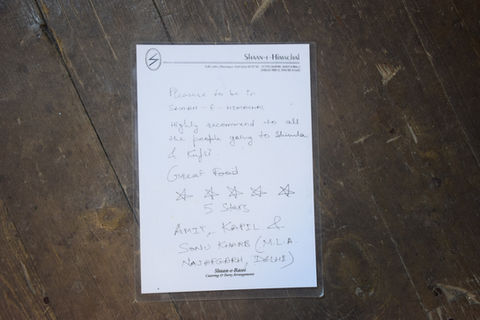 SHAAN-E-HIMACHAL
Pleasure to be in
SHAAN-E-HIMACHAL
Highly recommend to all
the people going to Shimla
& Kufri
Great Food
5 Stars
AMIT, KAPIL &
SONU KHARB (M.L.A.
NAJAFGARH, DELHI)
Shaan-e-Rasoi
Catering & Party Arrangements